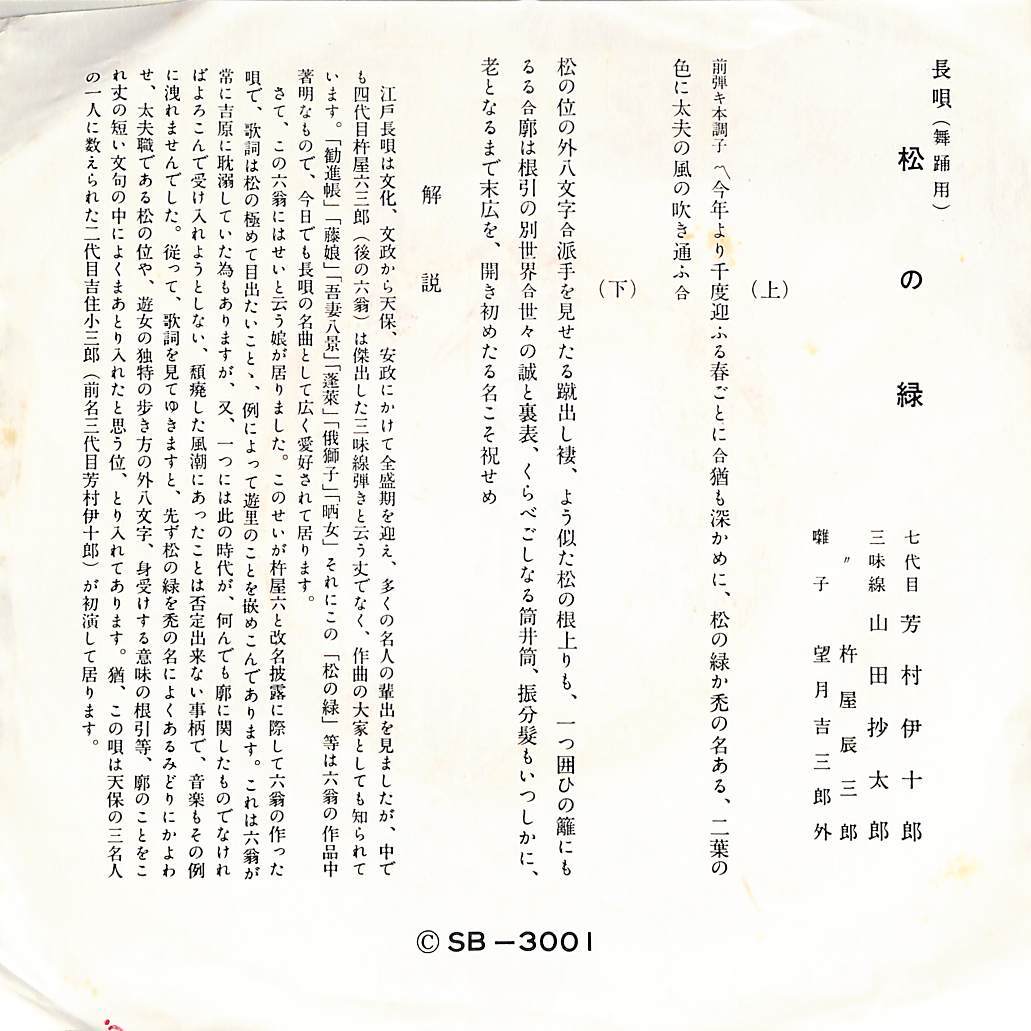 長唄（舞踊用）
松の緑
七代目 芳村伊十郎
三味線 山田抄太郎
〃 杵屋辰三郎
囃子 望月吉三郎外
（上）
前弾キ本調子〽今年より千度迎ふる春ごとに合猶も深かめに、松の緑か禿の名ある、二葉の
色に太夫の風の吹き通ふ合
（下）
松の位の外八文字合派手を見せたる蹴出し褄、よう似た松の根上りも、一つ囲ひの籬にも
るる合廓は根引の別世界合世々の誠と裏表、くらべごしなる筒井筒、振分髪もいつしかに、
老となるまで末広を、開き初めたる名こそ祝せめ
解説
江戸長唄は文化、文政から天保、安政にかけて全盛期を迎え、多くの名人の輩出を見ましたが、中で
も四代目杵屋六三郎（後の六翁）は傑出した三味線弾きと云う丈でなく、作曲の大家としても知られて
います。「勧進帳」「藤娘」「吾妻八景」「蓬萊」「俄獅子」「晒女」それにこの「松の緑」等は六翁の作品中
著明なもので、今日でも長唄の名曲として広く愛好されて居ります。
さて、この六翁にはせいと云う娘が居りました。このせいが杵屋六と改名披露に際して六翁の作った
唄で、歌詞は松の極めて目出たいことゝ、例によって遊里のことを嵌めこんであります。これは六翁が
常に吉原に耽溺していた為もありますが、又、一つには此の時代が、何んでも廓に関したものでなけれ
ばよろこんで受け入れようとしない、頽廃した風潮にあったことは否定出来ない事柄で、音楽もその例
に洩れませんでした。従って、歌詞を見てゆきますと、先ず松の緑を禿の名によくあるみどりにかよわ
せ、太夫職である松の位や、遊女の独特の歩き方の外八文字、身受けする意味の根引等、廓のことをこ
れ丈の短い文句の中によくまあとり入れたと思う位、とり入れてあります。猶、この唄は天保の三名人
の一人に数えられた二代目吉住小三郎（前名三代目芳村伊十郎）が初演して居ります。
© SB－3001